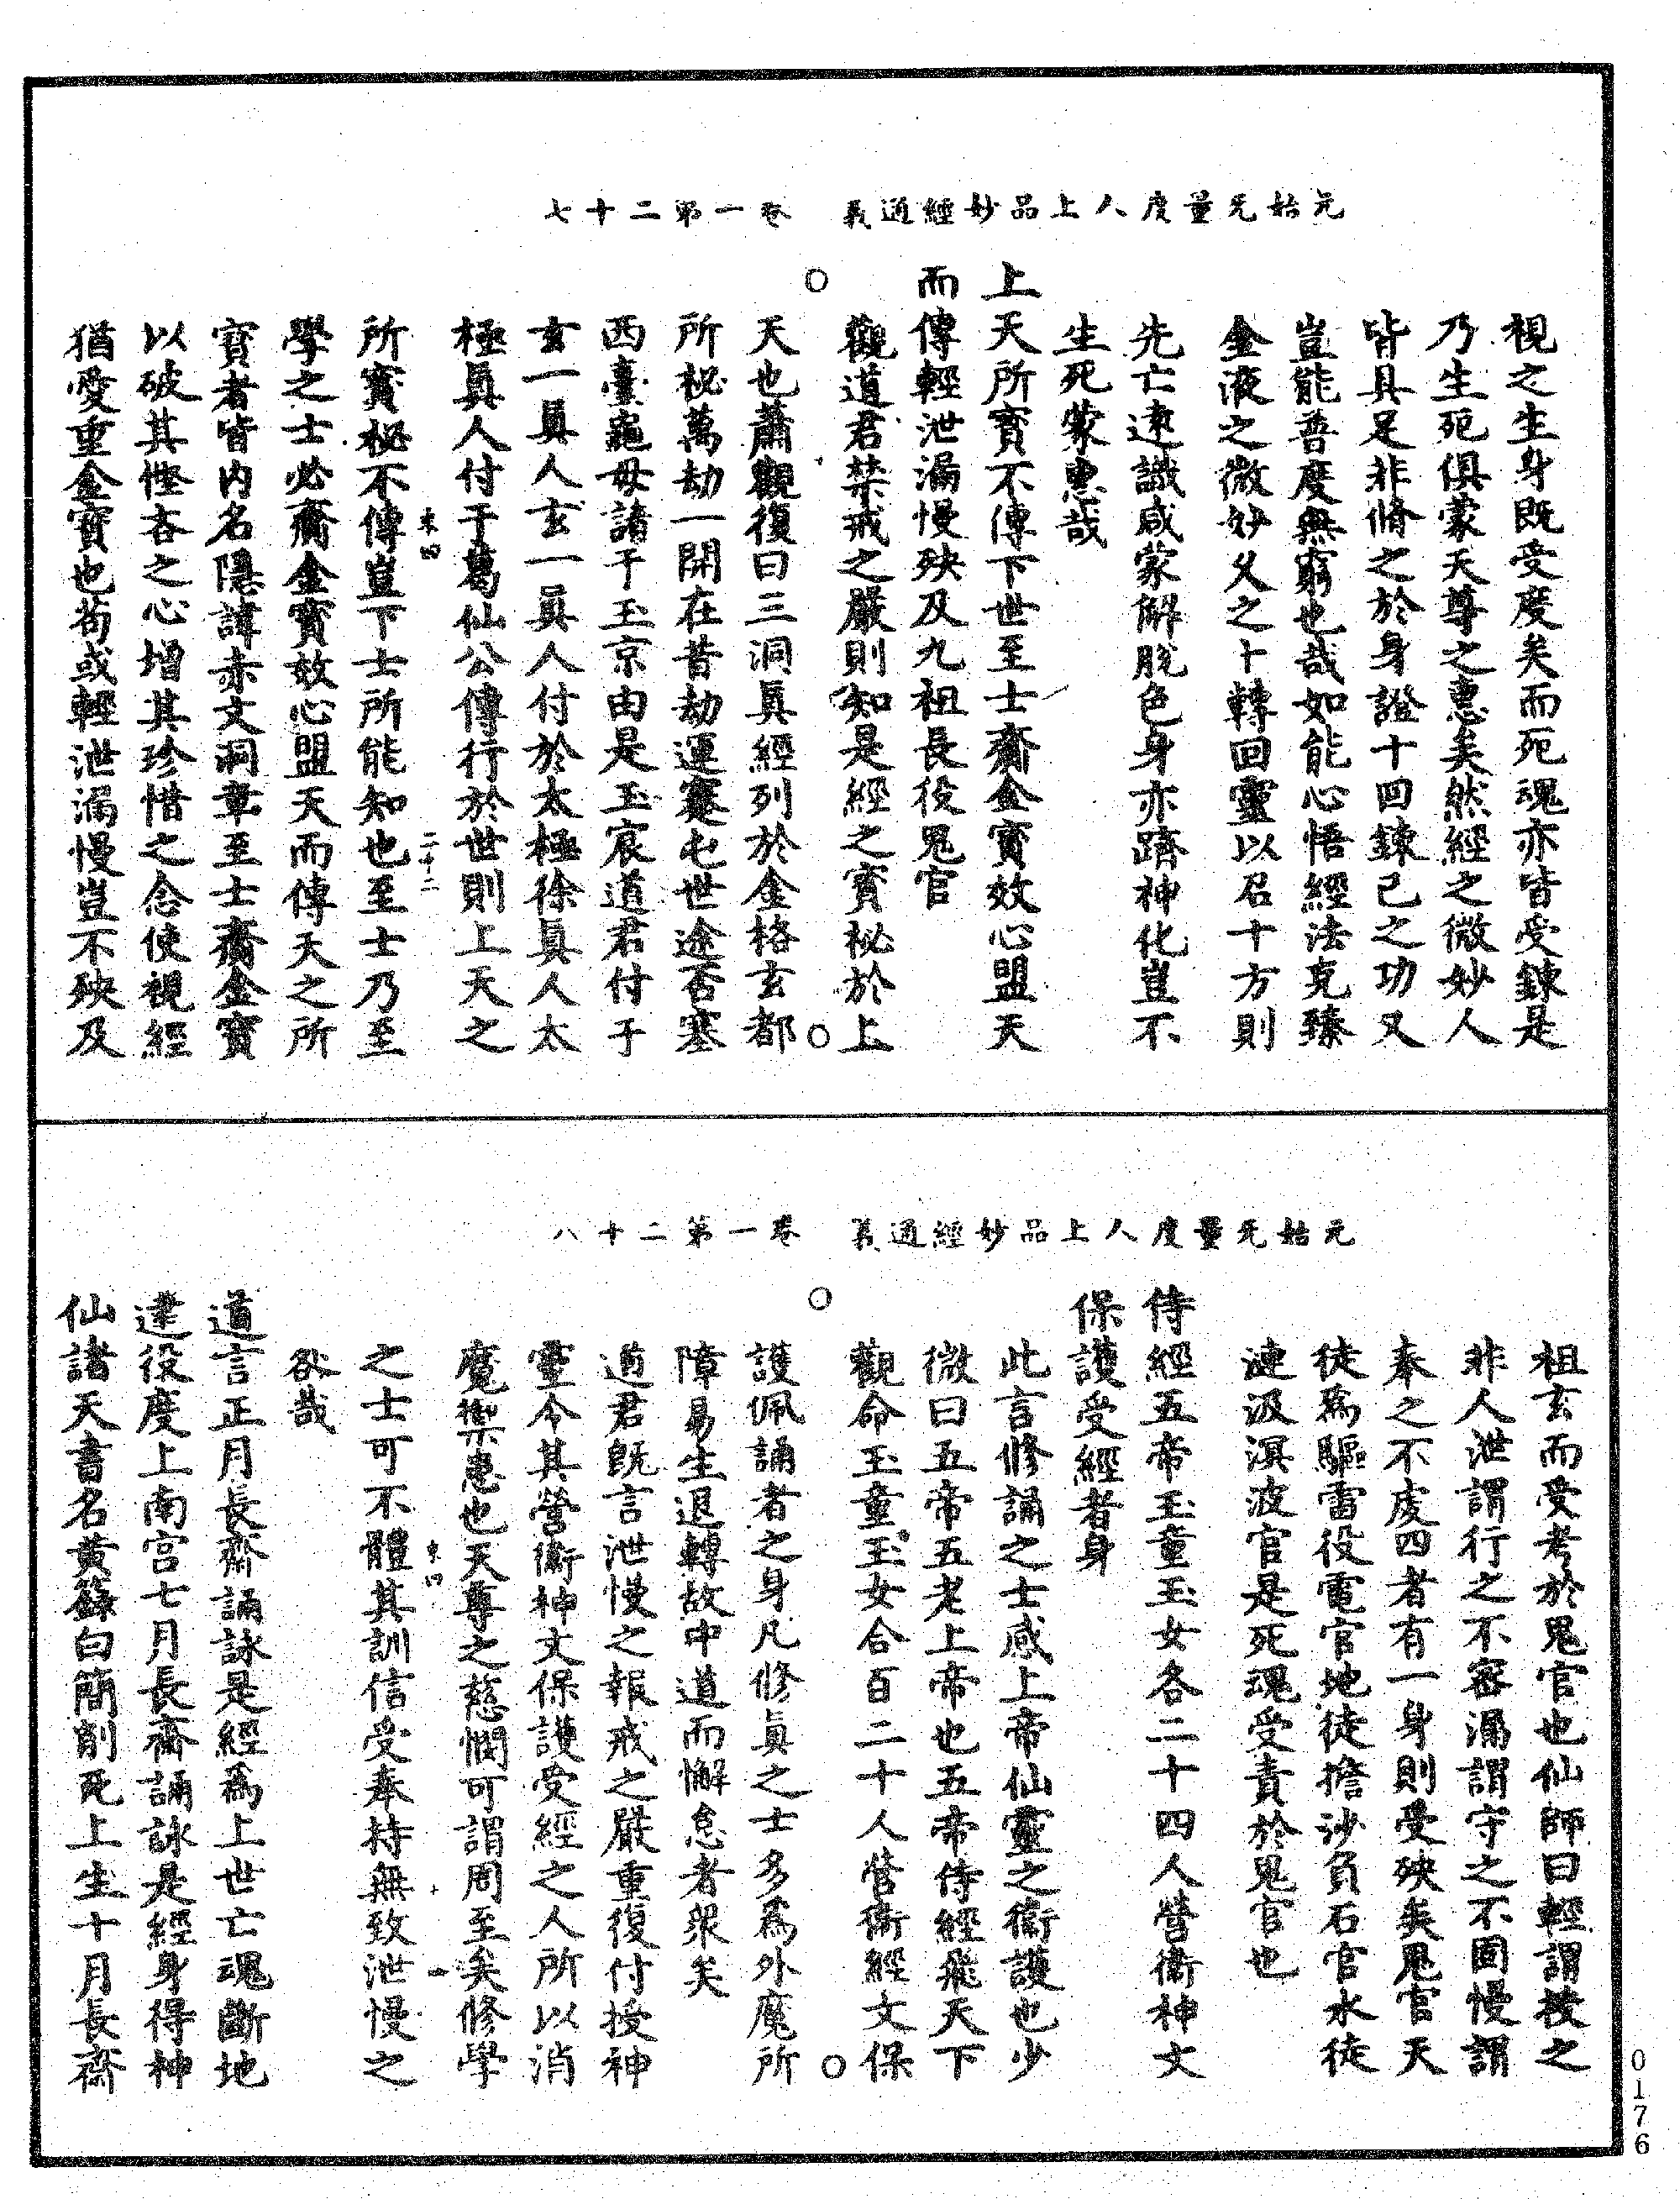 元始无量度人上品妙經通義　卷一第二十七
視之生身既受度矣而死魂亦皆受鍊是
乃生死俱蒙天尊之惠矣然經之微妙人
皆具足非脩之於身證十回鍊已之功又
豈能普度無窮也哉如能心悟經法克臻
金液之微妙火之十轉回靈以召十方則
先亡遠識咸蒙解脫色身亦躋神化豈不
生死蒙惠哉
上天所寶不傳下世至士齎金寶效心盟天
而傳輕泄漏慢殃及九祖長役鬼官
觀道君禁戒之嚴則知是經之寶秘於上
天也蕭觀復曰三洞眞經列於金格玄都
所祕萬劫一開在昔劫運蹇屯世途否塞
西臺龜母諸干玉京由是玉宸道君付于
玄一眞人玄一眞人付於太極徐眞人太
極眞人付于葛仙公傳行於世則上天之
所寶秘不傳豈下士所能知也至士乃至
學之士必齎金寶效心盟天而傳天之所
寶者皆內名隱諱赤文洞章至士齎金寶
以破其慳吝之心增其珍惜之念使視經
猶愛重金寶也苟或輕泄漏慢豈不殃及
元始无量度人上品妙經通義　卷一第二十八
祖玄而受考於鬼官也仙師曰輕謂授之
非人泄謂行之不密漏謂守之不固慢謂
奉之不虔四者有一身則受殃矣鬼官天
徒為驅雷役電官地徒擔沙負石官水徒
漣汲溟波官是死魂受責於鬼官也
侍經五帝玉童玉女各二十四人營衞神文
保護受經者身
此言修誦之士感上帝仙靈之衞護也少
微曰五帝五老上帝也五帝侍經飛天下
觀命玉童玉女合百二十人營衞經文保
護佩誦者之身凡修眞之士多為外魔所
障易生退轉故中道而懈怠者衆矣
道君旣言泄慢之報戒之嚴重復付授神
靈令其營衞神文保護受經之人所以消
魔禦患也天尊之慈憫可謂周至矣修學
之士可不體其訓信受奉持無致泄慢之
咎哉
道言正月長齋誦詠是經為上世亡魂斷地
逮役度上南宮七月長齋誦詠是經身得神
仙諸天書名黃籙白簡削死上生十月長齋
0176